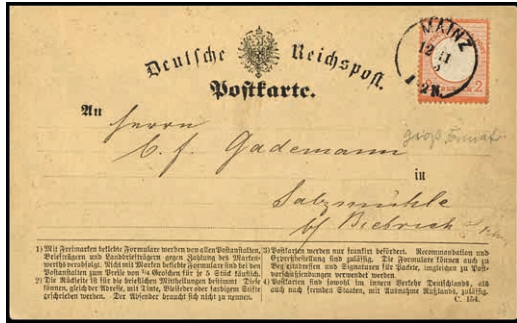 Deutsche Reichspost.
Postkarte.
MAINZ
12 II
1-2N.
2
An
Herrn
C. f. Gademann
in
Salzmühle
b/ Biebrich
groß Format
1) Mit Freimarken beklebte Formulare werden von allen Postanstalten,
Briefträgern und Landbriefträgern gegen Zahlung des Marken-
werths verabfolgt. Nicht mit Marken beklebte Formulare sind bei den
Postanstalten zum Preise von ¼ Groschen für je 5 Stück käuflich.
2) Die Rückseite ist für die brieflichen Mittheilungen bestimmt. Diese
können, gleich der Adresse, mit Tinte, Bleifeder oder farbigem Stifte
geschrieben werden. Der Absender braucht sich nicht zu nennen.
3) Postkarten werden nur frankirt befördert. Recommandation und
Expreßbestellung sind zulässig. Die Formulare können auch zu
Begleitadressen und Signaturen für Packete, imgleichen zu Post-
vorschußsendungen verwendet werden.
4) Postkarten sind sowohl im innern Verkehr Deutschlands, als
auch nach fremden Staaten, mit Ausnahme Rußlands, zulässig.
C. 154.